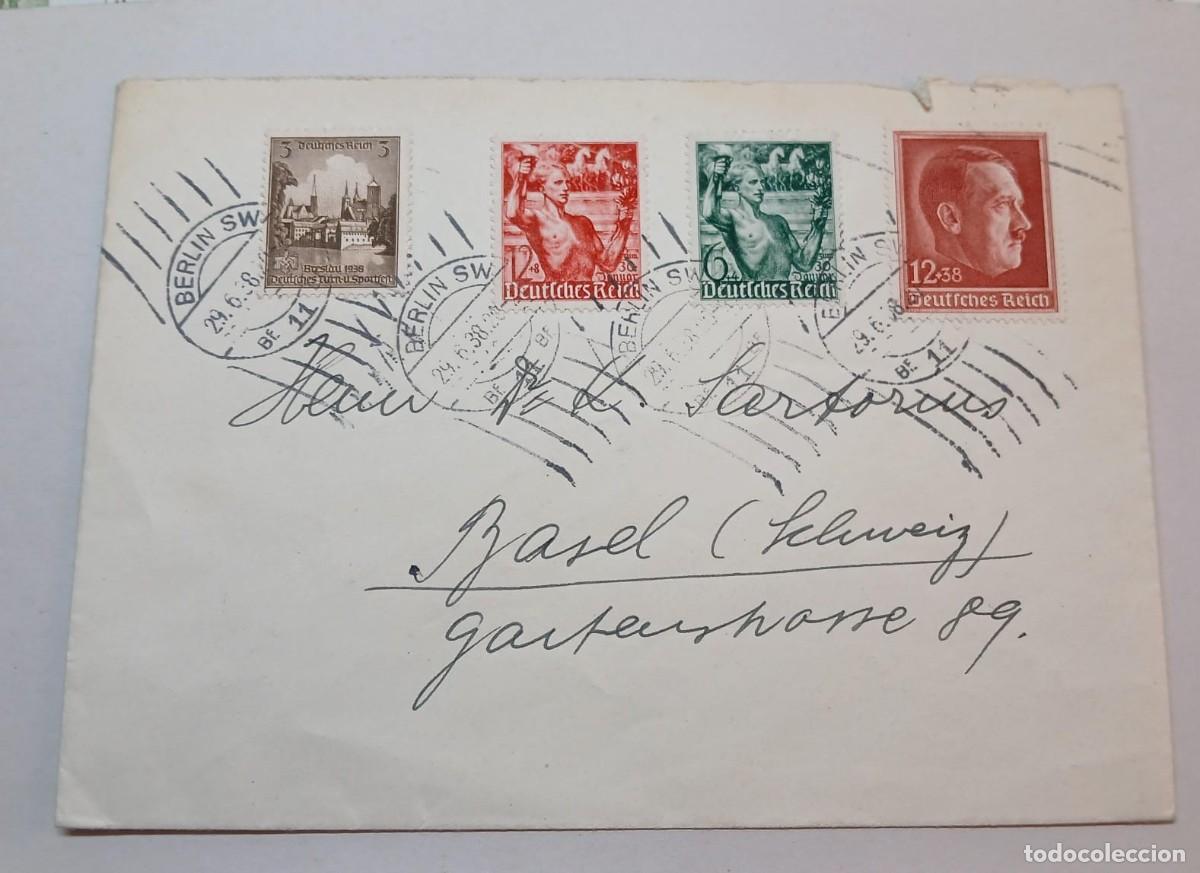 3 Deutsches Reich 3
Breslau 1938
Deutsches Turn-u.Sportfest
12+8
zum
30
Januar
Deutsches Reich
6+4
zum
30
Januar
Deutsches Reich
12+38
Deutsches Reich
BERLIN SW
29.6.38
BE 11
BERLIN SW
29.6.38
BE 11
BERLIN SW
29.6.38
BE 11
BERLIN SW
29.6.38
BE 11
Herrn Dr. K. Sartorius
Basel (Schweiz)
Gartenstrasse 89.
todocoleccion